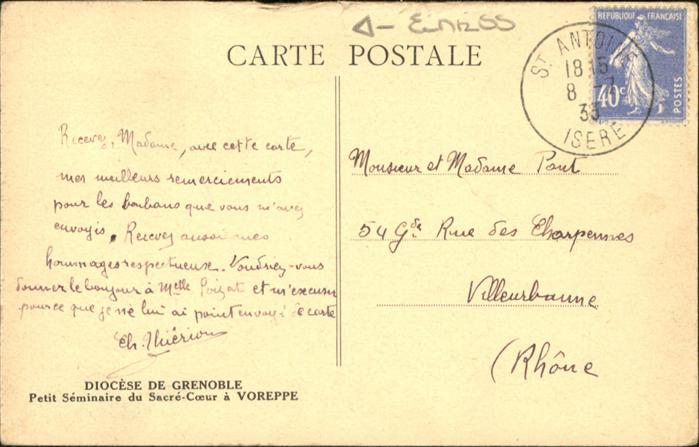 CARTE POSTALE
REPUBLIQUE FRANÇAISE
40c
POSTES
ST ANTOINE
18 15
8 -7
33
ISERE
Recevez, Madame, avec cette carte,
mes meilleurs remerciements
pour les bonbons que vous m'avez
envoyés. Recevez aussi mes
hommages respectueux. Voudriez-vous
donner le bonjour à Melle et m'excuser
parce que je ne lui ai point envoyé de carte
Ch. Thiérion
Monsieur et Madame Pont
54 Gde Rue des Charpennes
Villeurbanne
(Rhône
DIOCÈSE DE GRENOBLE
Petit Séminaire du Sacré-Cœur à VOREPPE